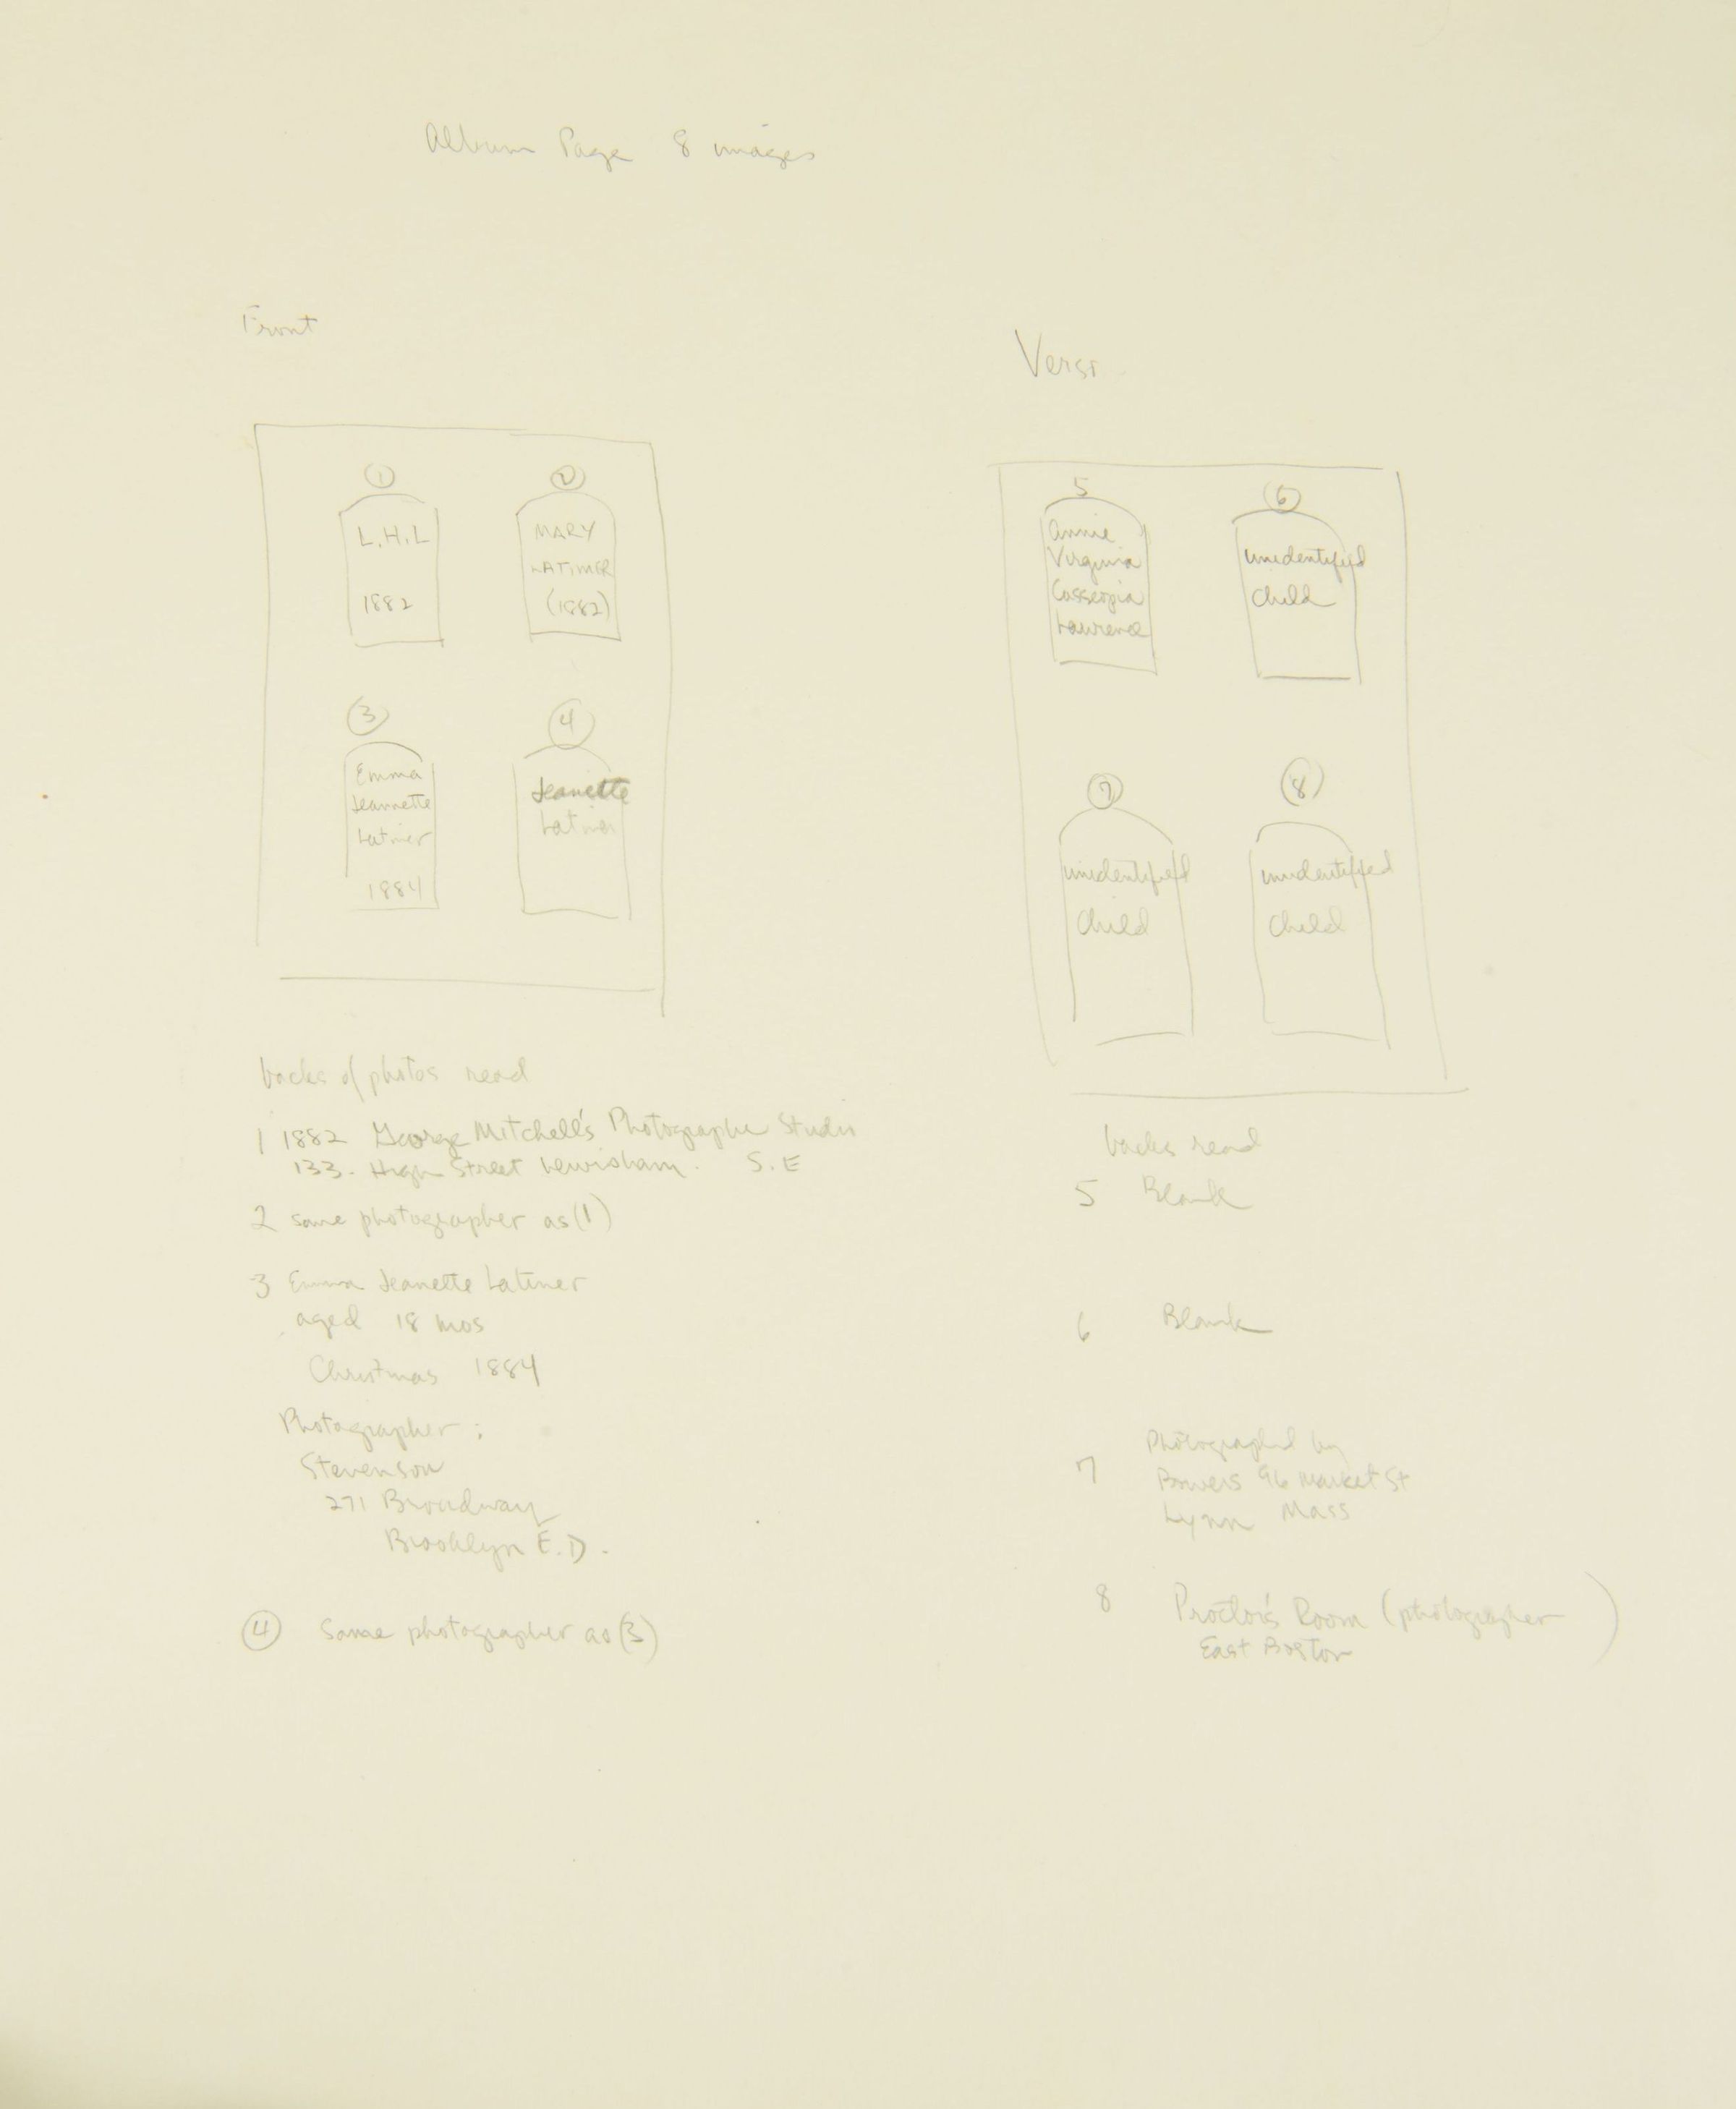 Album Page 8 images
Front
1
L.H.L
1882
2
MARY
LATIMER
(1882)
3
Emma
Jeannette
Latimer
1884
4
Jeanette
Latimer
backs of photos read
1 1882 George Mitchell's Photographic Studio
133. High Street Lewisham. S.E
2 same photographer as (1)
3 Emma Jeanette Latimer
aged 18 mos
Christmas 1884
Photographer:
Stevenson
271 Broadway
Brooklyn E.D.
4 Same photographer as (3)
Verso
5
Annie
Virginia
Casseopia
Lawrence
6
unidentified
child
7
unidentified
Child
8
unidentified
Child
backs read
5 Blank
6 Blank
7 Photographed by
Bowers 96 Market St
Lynn Mass
8 Proctor's Room (photographer)
East Boston